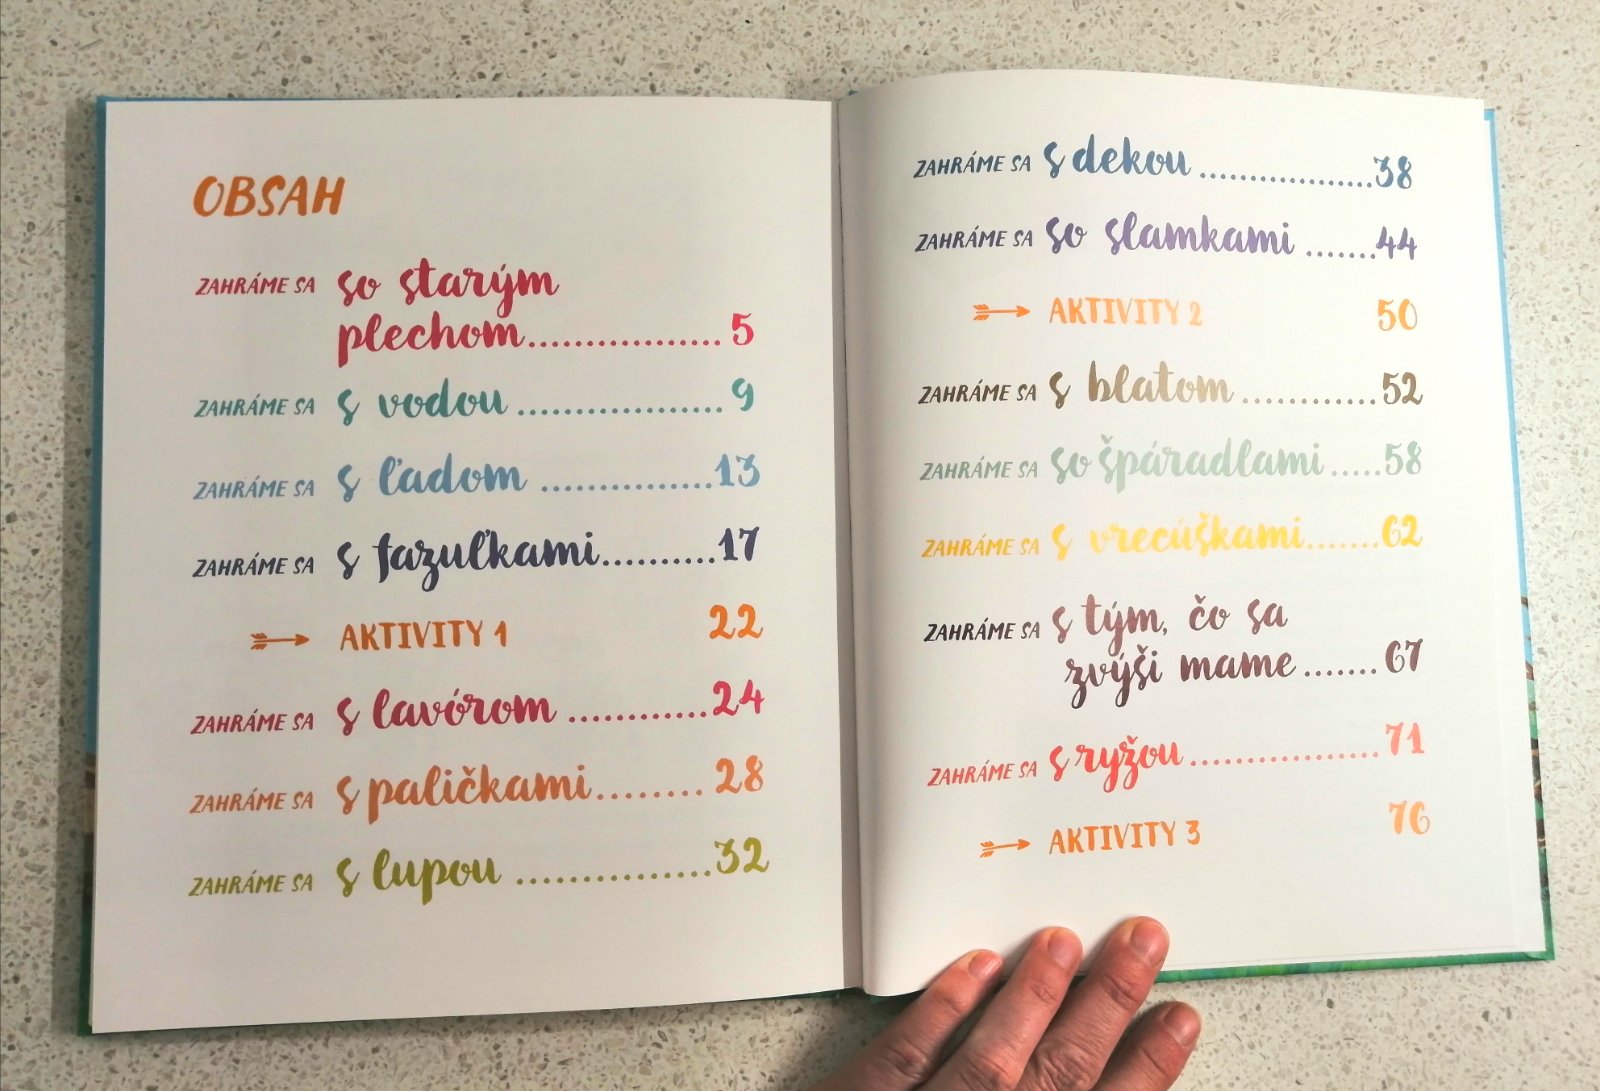 OBSAH
ZAHRÁME SA so starým
plechom................. 5
ZAHRÁME SA s vodou .................. 9
ZAHRÁME SA s ľadom ...............13
ZAHRÁME SA s fazuľkami..........17
AKTIVITY 1 22
ZAHRÁME SA s lavórom ............24
ZAHRÁME SA s paličkami........ 28
ZAHRÁME SA s lupou .................32
ZAHRÁME SA s dekou ..................38
ZAHRÁME SA so slamkami .......44
AKTIVITY 2 50
ZAHRÁME SA s blatom ............52
ZAHRÁME SA so špáradlami .....58
ZAHRÁME SA s vrecúškami.......62
ZAHRÁME SA s tým, čo sa
zvýši mame .......67
ZAHRÁME SA s ryžou .................71
AKTIVITY 3 76